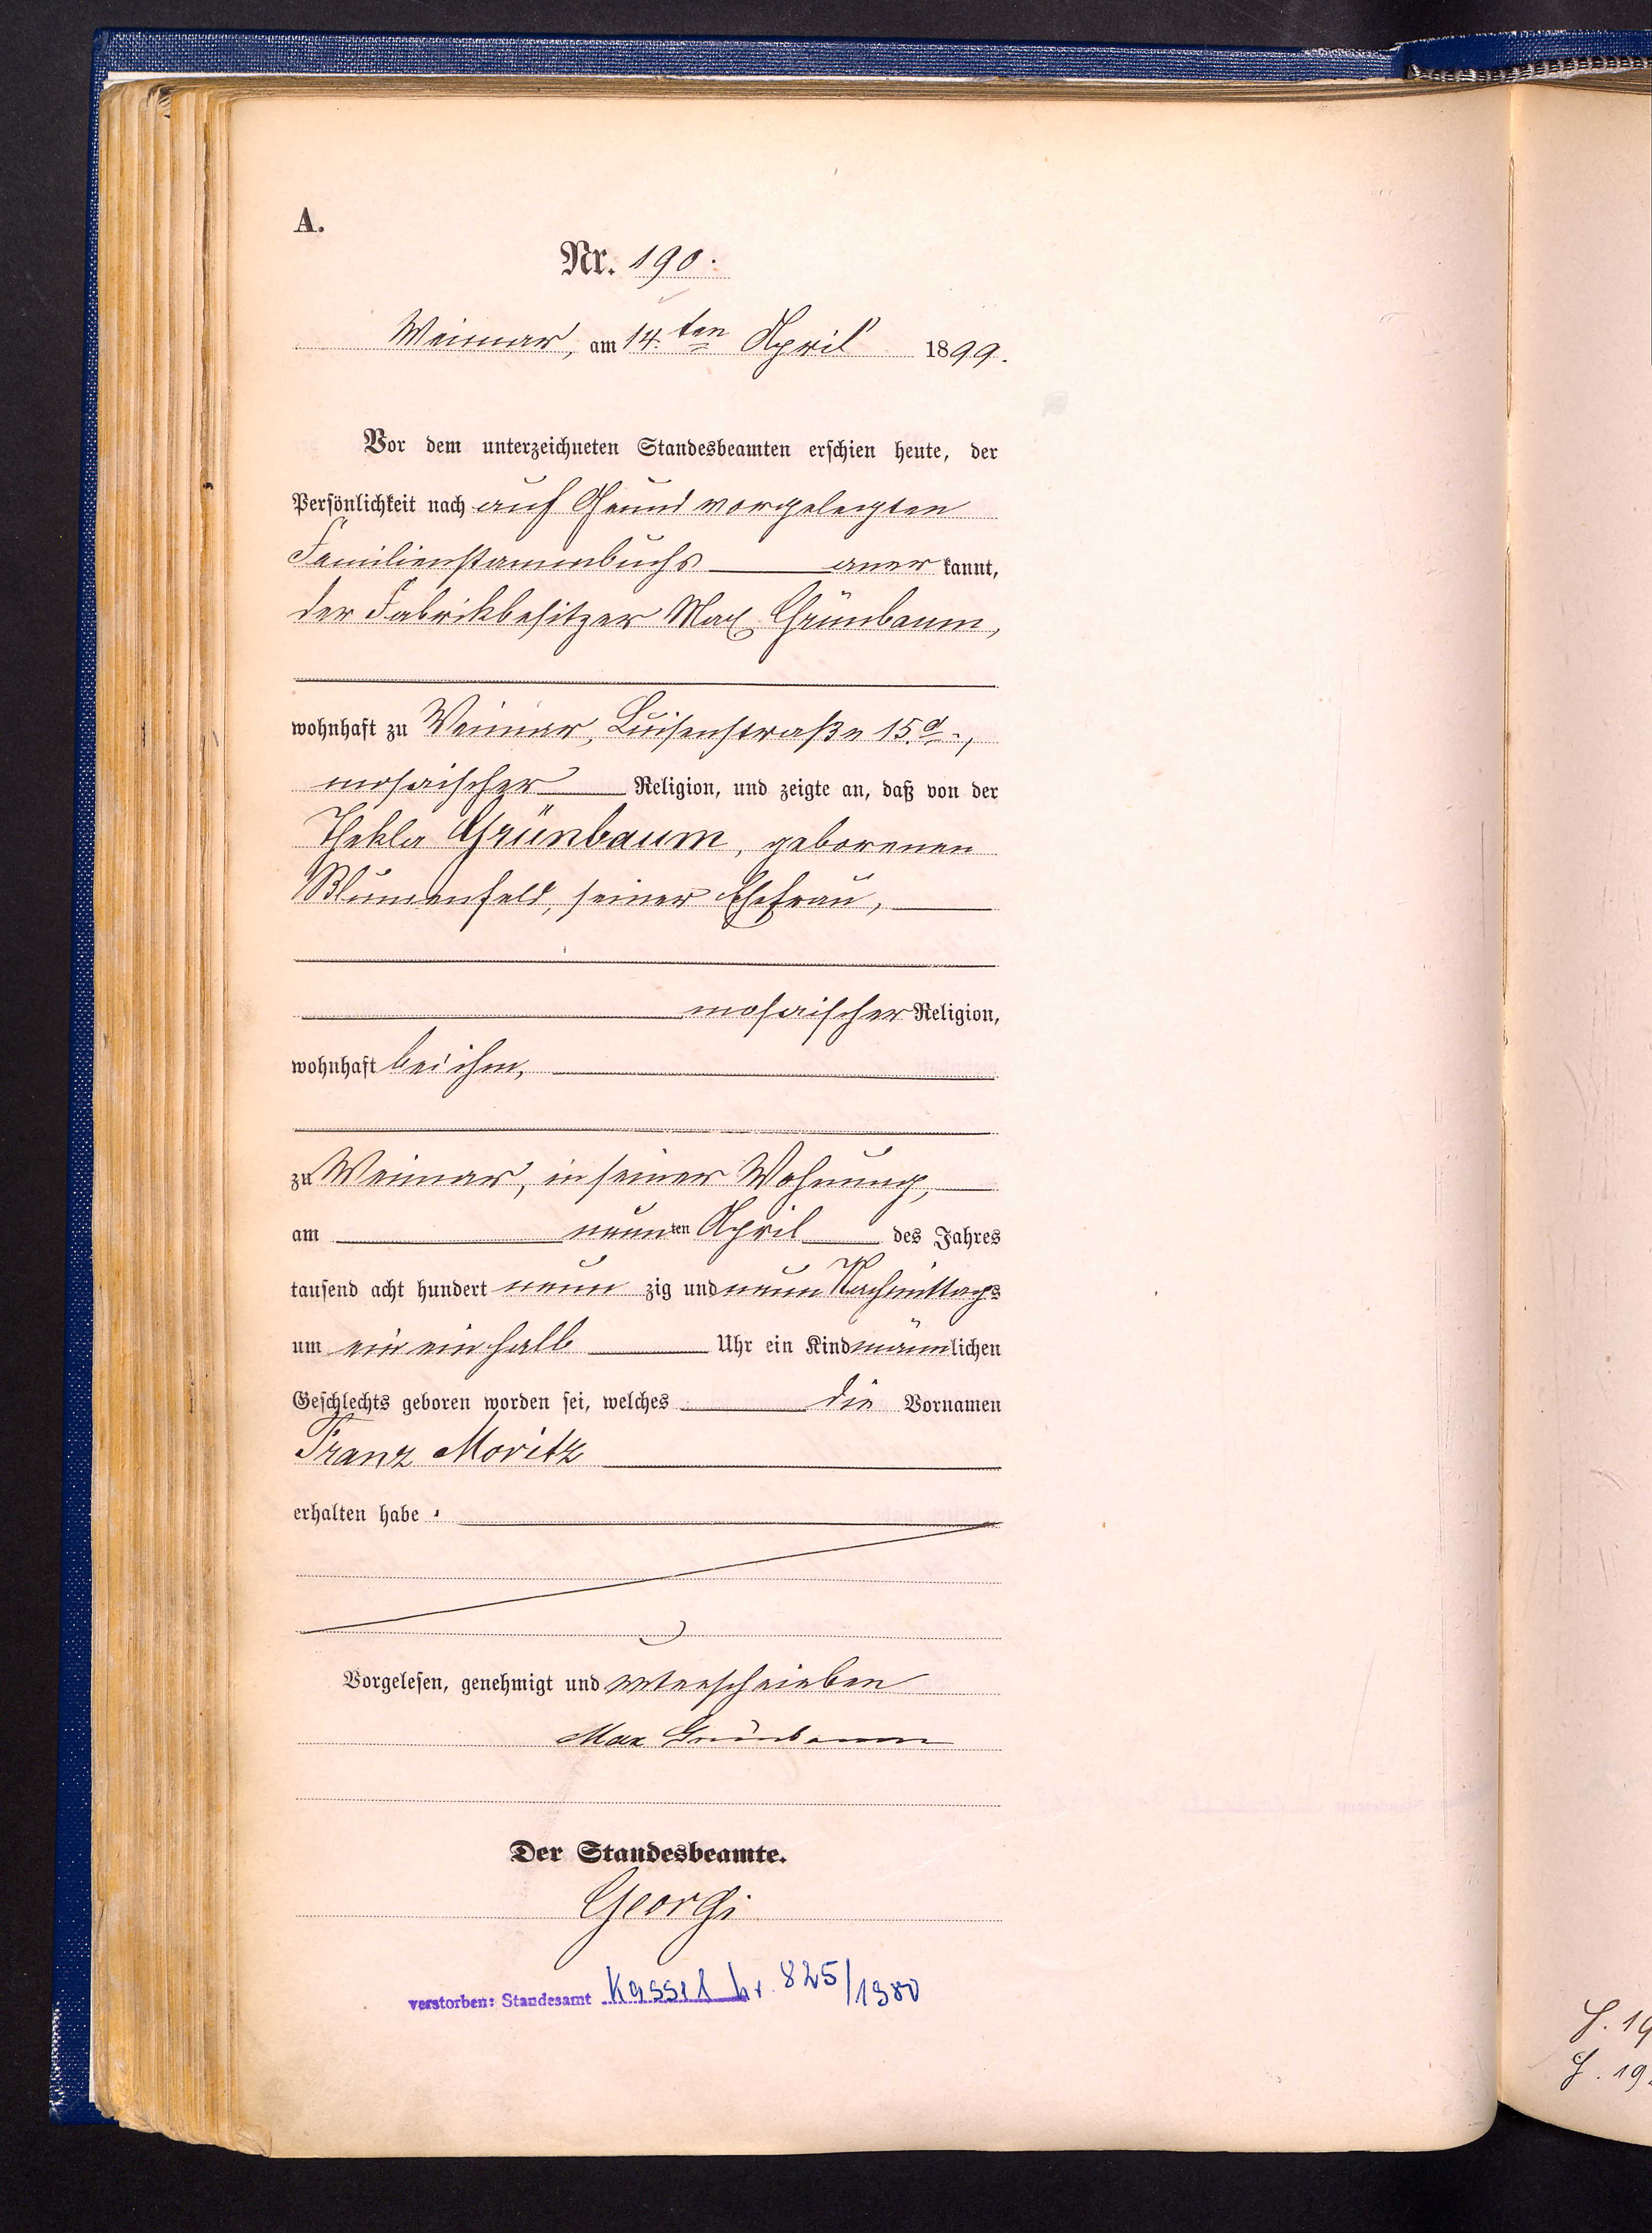 A.
Nr. 190.
Weimar, am 14.ten April 1899.
Vor dem unterzeichneten Standesbeamten erschien heute, der
Persönlichkeit nach auf Grund vorgelegten
Familienstammbuchs aner kannt,
der Fabrikbesitzer Max Grünbaum,
wohnhaft zu Weimar, Luisenstraße 15d.,
mosaischer Religion, und zeigte an, daß von der
Thekla Grünbaum, geborenen
Blumenfeld, seiner Ehefrau,
mosaischer Religion,
wohnhaft bei ihm,
zu Weimar, in seiner Wohnung,
am neunten April des Jahres
tausend acht hundert neun zig und neun Nachmittags
um ein einhalb Uhr ein Kind männlichen
Geschlechts geboren worden sei, welches die Vornamen
Franz Moritz
erhalten habe.
Vorgelesen, genehmigt und unterschrieben
Max Grünbaum
Der Standesbeamte.
Georgi
verstorben: Standesamt Kassel Nr. 825/1980